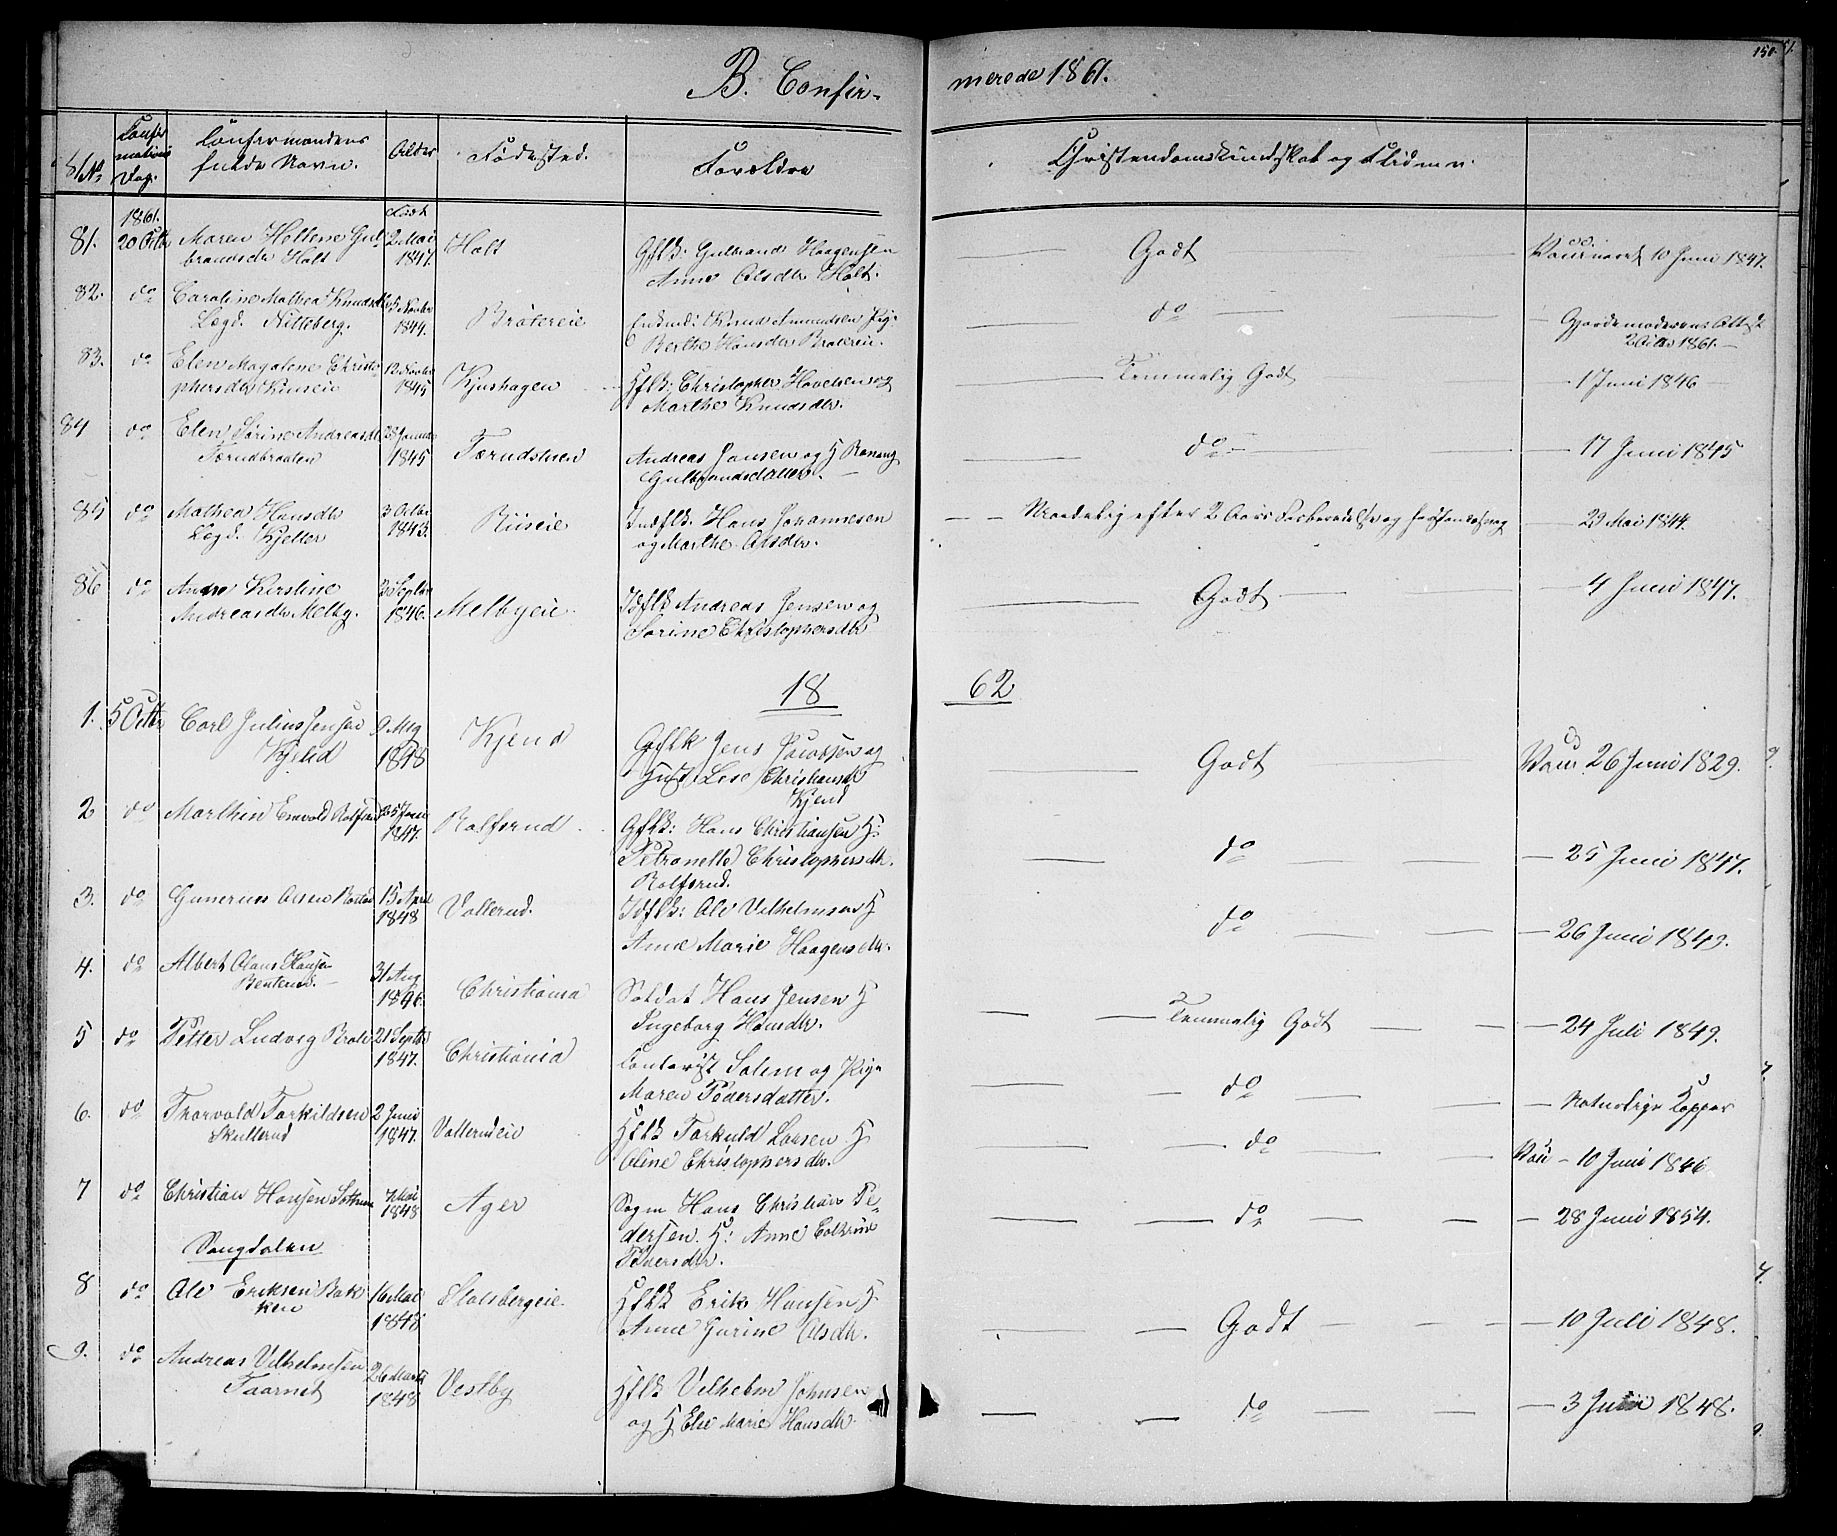 B. Confirmerede 1861.
150.
No
Confirmations Dag.
Confirmandens fulde Navn.
Alder
Fødested.
Forældre
Christendomskundskab og Flid m. v.
1861.
Født
81. 20 Octbr Maren Hellene Gulbrandsdr Holt 2 Mai 1847. Holt Gflk: Gulbrand Haagensen Anne Olsdr Holt. Godt Vaccineret 10 Juni 1847.
82. do Caroline Mathea Knudsdr Lægd. Nitteberg. 1844. Bråtereie Knud Amundsen Pige Berthe Hansdr Bråtereie. do Gjordemoderens Attest 1861.
83. do Elen Magdlene Christophersdr Riiseie 12 1845 Kjushagen Hflk: Christopher Havelsen og Marthe Knudsdr. Temmelig Godt 17 Juni 1846
84 do Elen Sørine Andreasdr Tærudbraaten 28 Januar 1845 Tærudstuen Andreas Jansen og H Ranang Gulbrandsdatter. do 17 Juni 1845
85 do Mathea Hansdr Lægd. Kjeller 3 Octbr 1843. Riiseie Indflk. Hans Johannesen og Marthe Olsdr. Maadelig efter 2 Aars Forberedelse og 23 Mai 1844.
86 do Kirstine Andreasdr Melby. Septbr 1846. Melbyeie. Idflk Andreas Jensen og Sørine Christophersdr Godt 4 Juni 1847.
1862
1. 5 Octbr Carl Julius Jensen Kjend 9 Mai 1848 Kjend Gflk Jens Jacobsen og Hust. Lise Christiansdr Kjend Godt Vacc 26 Juni 1829.
2 do Marthin Enevold Rolfsrud 25 Jan 1847. Rolfsrud Gflk: Hans Christiansen H: Petronelle Christophersdr. Rolfsrud. do 25 Juni 1847.
3. do Gunerius Olsen 15 April 1848 Vallerud. Idflk: Ole Vilhelmsen H Anne Marie Haagensdr. do 26 Juni 1849.
4. do Albert Olaus Hansen Benterud. 31 Aug 1846. Christiania Soldat Hans Jensen H Ingeborg Hansdr. Temmelig Godt 24 Juli 1849.
5 do Petter Ludvig 21 Septbr 1847. Christiania Contorist Solem og Pige Maren Pedersdatter. do Naturlige Kopper
6. do Thorvald Torkildsen Skullerud 2 Juni 1847. Vallerudeie Hflk Torkild Larsen H Oline Christophersdr. do Vacc 10 Juni 1846
7 do Christian Hansen 7 Mai 1848 Ager Hans Christian Pedersen. H: Anne Pedersdr. do 28 Juni 1854.
8 do Ole Eriksen Bakken 16 Mai 1848 Hflk Erik Hansen H. Anne Gurine Olsdr. Godt 10 Juli 1848.
9. do Andreas Vilhelmsen Taarnet 26 Marts 1848 Vestby Hflk Vilhelm Johnsen og H Elie Marie Hansdr. do 3 Juni 1848.